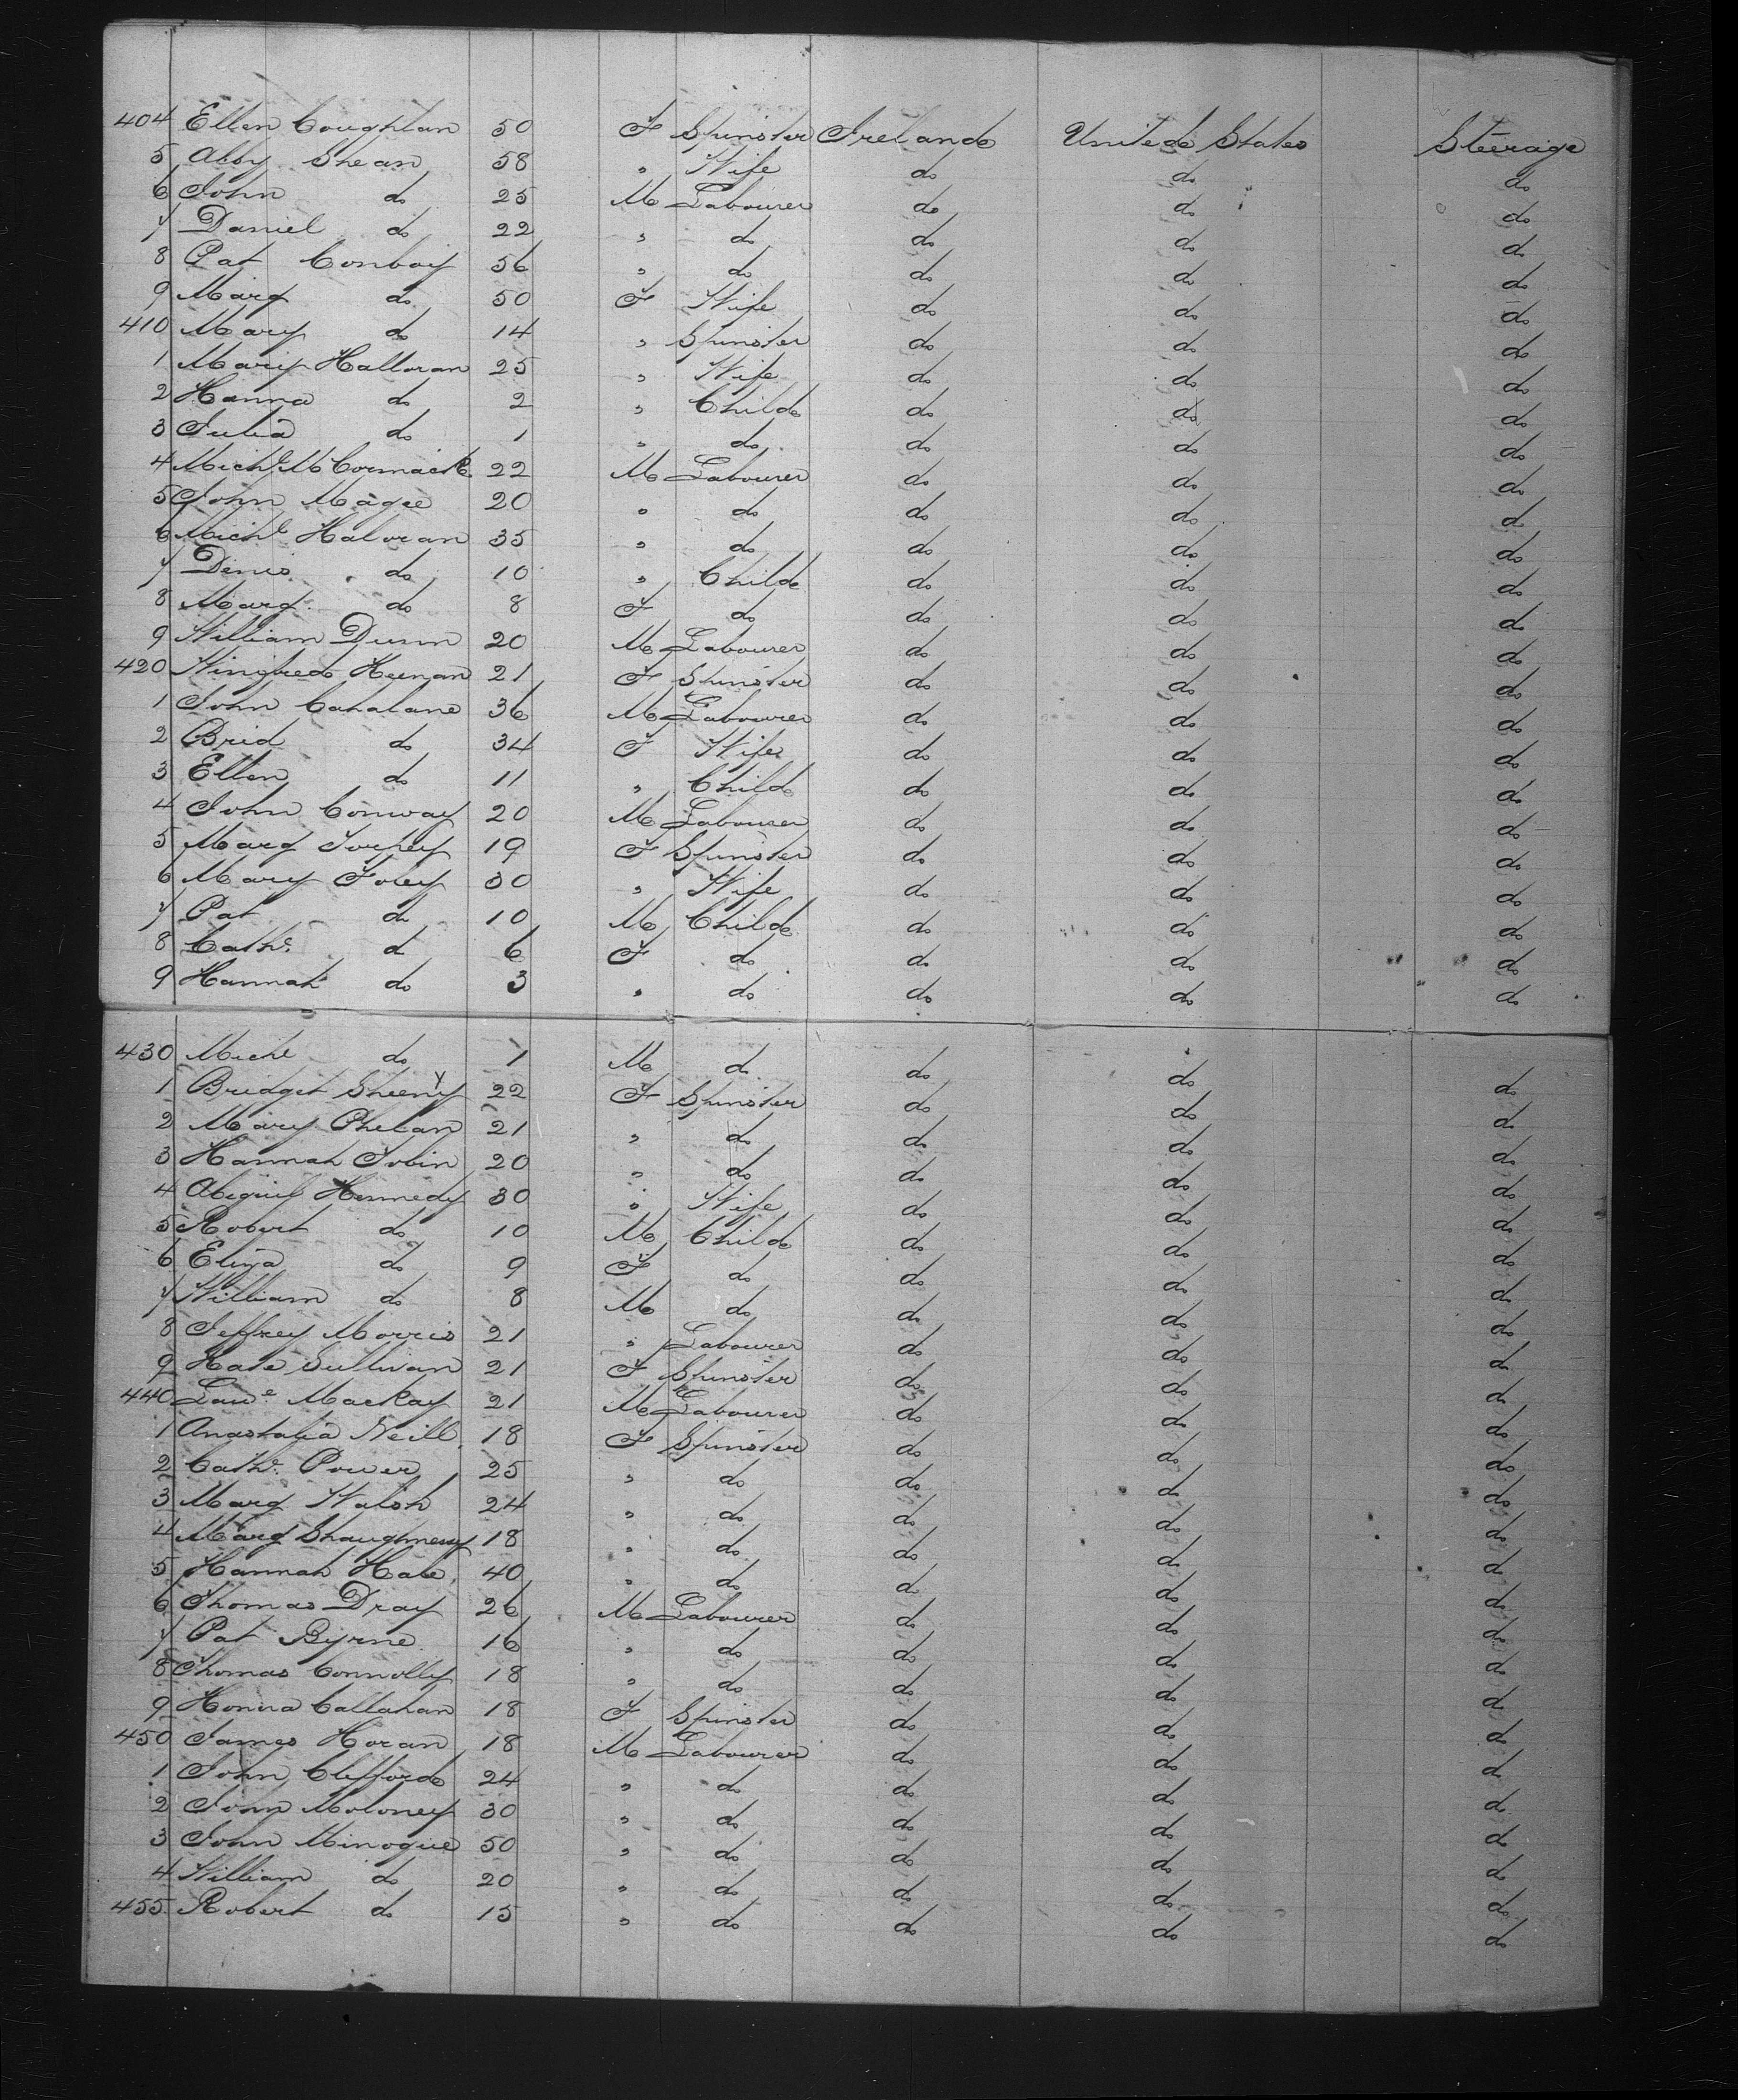 404 Ellen Coughlan 50 F Spinster Ireland United States Steerage
5 Abby Shean 58 " Wife do do do
6 John do 25 M Labourer do do do
7 Daniel do 22 " do do do do
8 Pat Conboy 56 " do do do do
9 Marg do 50 F Wife do do do
410 Mary do 14 " Spinster do do do
1 Mary Halloran 25 " Wife do do do
2 Hanna do 2 " Child do do do
3 Julia do 1 " do do do do
4 Michl McCormack 22 M Labourer do do do
5 John Magee 20 " do do do do
6 Michl Haloran 35 " do do do do
7 Denis do 10 " Child do do do
8 Marg do 8 F do do do do
9 William Dunn 20 M Labourer do do do
420 Winifred Keenan 21 F Spinster do do do
1 John Cahalane 36 M Labourer do do do
2 Brid do 34 F Wife do do do
3 Ellen do 11 " Child do do do
4 John Conway 20 M Labourer do do do
5 Marg Torpey 19 F Spinster do do do
6 Mary Foley 30 " Wife do do do
7 Pat do 10 M Child do do do
8 Cathe do 6 F do do do do
9 Hannah do 3 " do do do do
430 Michl do 1 M do do do do
1 Bridget Sheeny 22 F Spinster do do do
2 Mary Phelan 21 " do do do do
3 Hannah Tobin 20 " do do do do
4 Kennedy 30 " Wife do do do
5 Robert do 10 M Child do do do
6 Eliza do 9 F do do do do
7 William do 8 M do do do do
8 Jeffrey Morris 21 " Labourer do do do
9 Kate Sullivan 21 F Spinster do do do
440 Lawe MacKay 21 M Labourer do do do
1 Anastatia Neill 18 F Spinster do do do
2 Cathe Power 25 " do do do do
3 Marg Walsh 24 " do do do do
4 Marg Shaughnessy 18 " do do do do
5 Hannah 40 " do do do do
6 Thomas Dray 26 M Labourer do do do
7 Pat Byrne 16 " do do do do
8 Thomas Connolly 18 " do do do do
9 Honora Callahan 18 F Spinster do do do
450 James Horan 18 M Labourer do do do
1 John Clifford 24 " do do do do
2 John Moloney 30 " do do do do
3 John Minogue 50 " do do do do
4 William do 20 " do do do do
455 Robert do 15 " do do do do